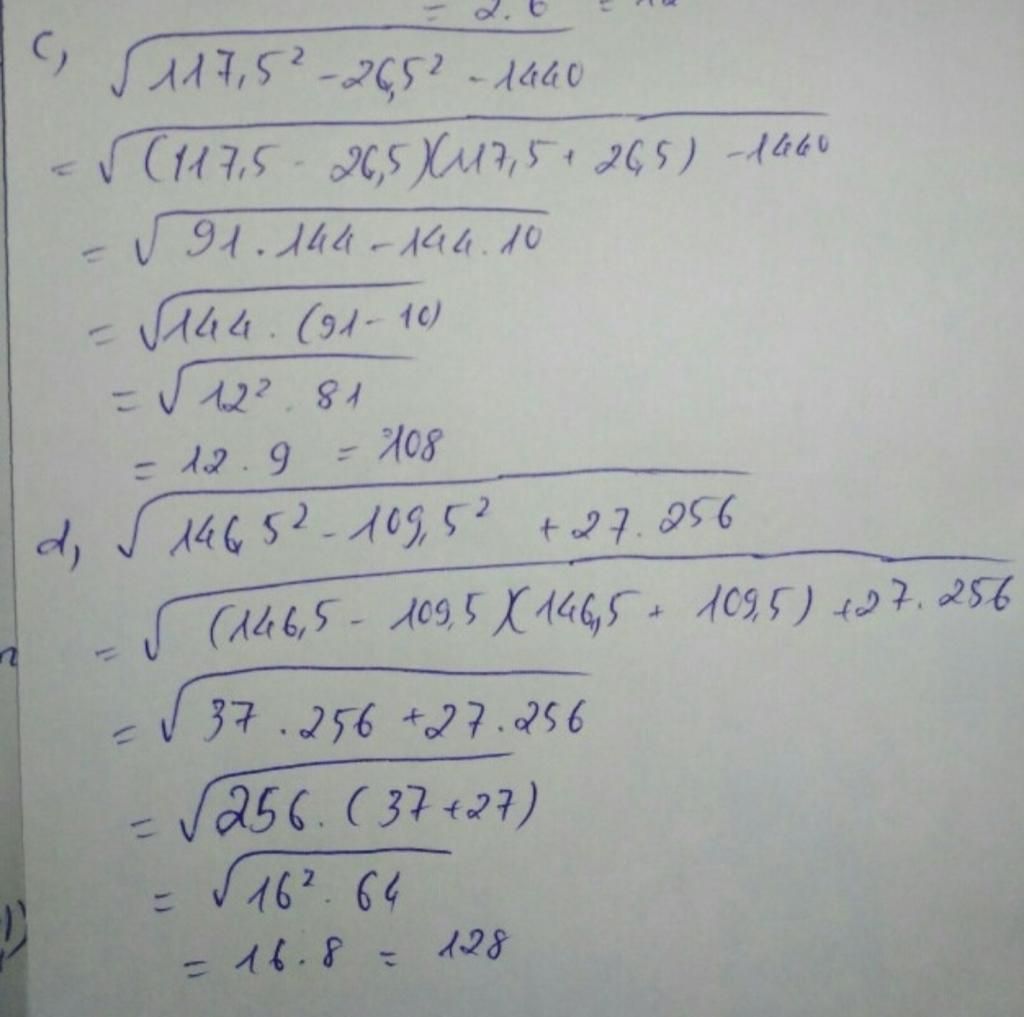 = 2.6 = 12
c, √117,5² - 26,5² - 1440
= √(117,5 - 26,5)(117,5 + 26,5) - 1440
= √91.144 - 144.10
= √144.(91-10)
= √12².81
= 12.9 = 108
d, √146,5² - 109,5² + 27.256
= √(146,5 - 109,5)(146,5 + 109,5) + 27.256
= √37.256 + 27.256
= √256.(37+27)
= √16².64
= 16.8 = 128